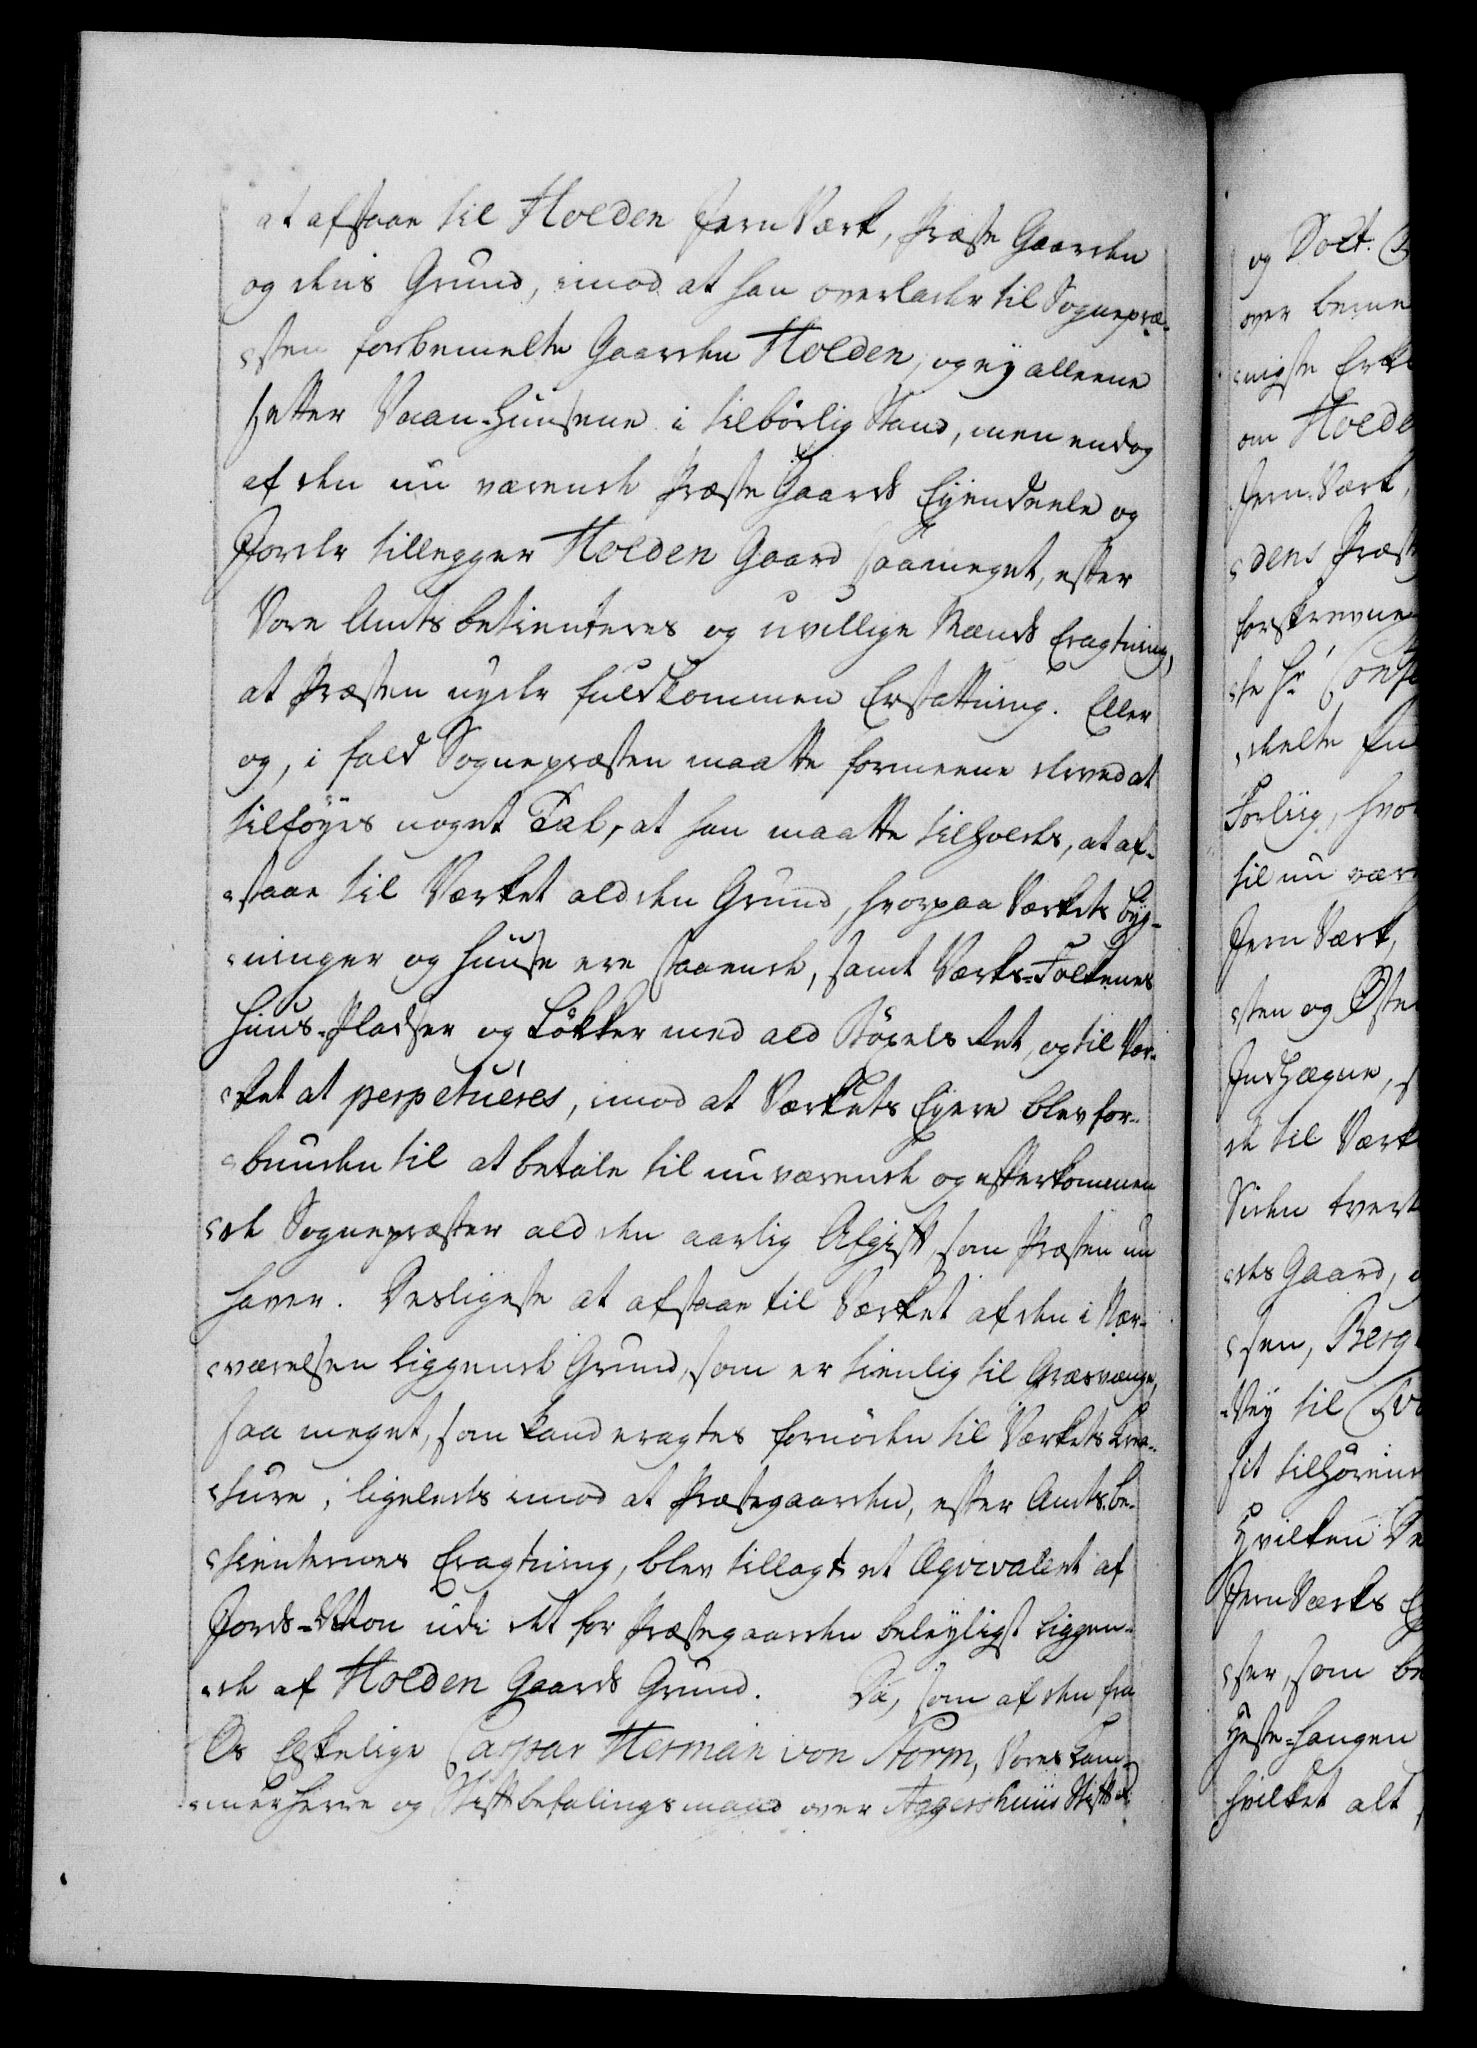 at afstaae til Holden Jern Værk, Præste Gaarden
og dens Grund, imod at han overlader til Sognepræ-
sten forbemelte Gaarden Holden, og ey alleene
sætter Vaan-Huusene i tilbørlig Stand, men endog
af den nu værende Præste Gaards Eyendeele og
Jorder tillegger Holden Gaard saameget, efter
Vore Amts betienteres og uvillige Mænds Eragtning,
at Præsten nyder fuldkommen Erstattning. Eller
og, i fald Sognepræsten maatte formeene derved at
tilføyes noget Tab, at han maatte tilholdes, at af-
staae til Værket ald den Grund, hvorpaa Værkets Byg-
ninger og Huuse ere staaende, samt Værks-Folkenes
Huus-Pladser og Løkker med ald Bøxels Ret, og til Vær-
ket at perpetuéres, imod at Værkets Eyere blev for-
bunden til at betale til nu værende og efterkommen
de Sognepræster ald den aarlig Afgift, som Præsten nu
haver. Desligeste at afstaae til Værket af den i Nær-
værelsen liggende Grund, som er tienlig til Græsvange,
saa meget, som kand eragtes fornøden til Værkets Krea-
ture, ligeledes imod at Præstegaarden, efter Amts be-
tienternes Eragtning, blev tillagt et Æqvivalent af
Jords-Mon udi det for Præstegaarden beleyligst liggen-
de af Holden Gaards Grund. Da, som af den fra
Os Elskelige Caspar Herman von Storm, Vores Kam-
merherre og Stiftbefalingsmand over Aggershuus Stift
og Doct.
over beme
nigste Erk
om Holde
Jern-Værk,
dens Præst
forskrevne
te Hr Cons
Forliig, hvo
til nu vær
Jern Værk,
sten og Øste
Indhægne, s
de til Værk
Siden tvert
des Gaard, o
sen, Berg
Vey til
sit tilhørend
Hvilken De
Jern Værks E
ser, som be
Heste-Hangen
hvilket alt